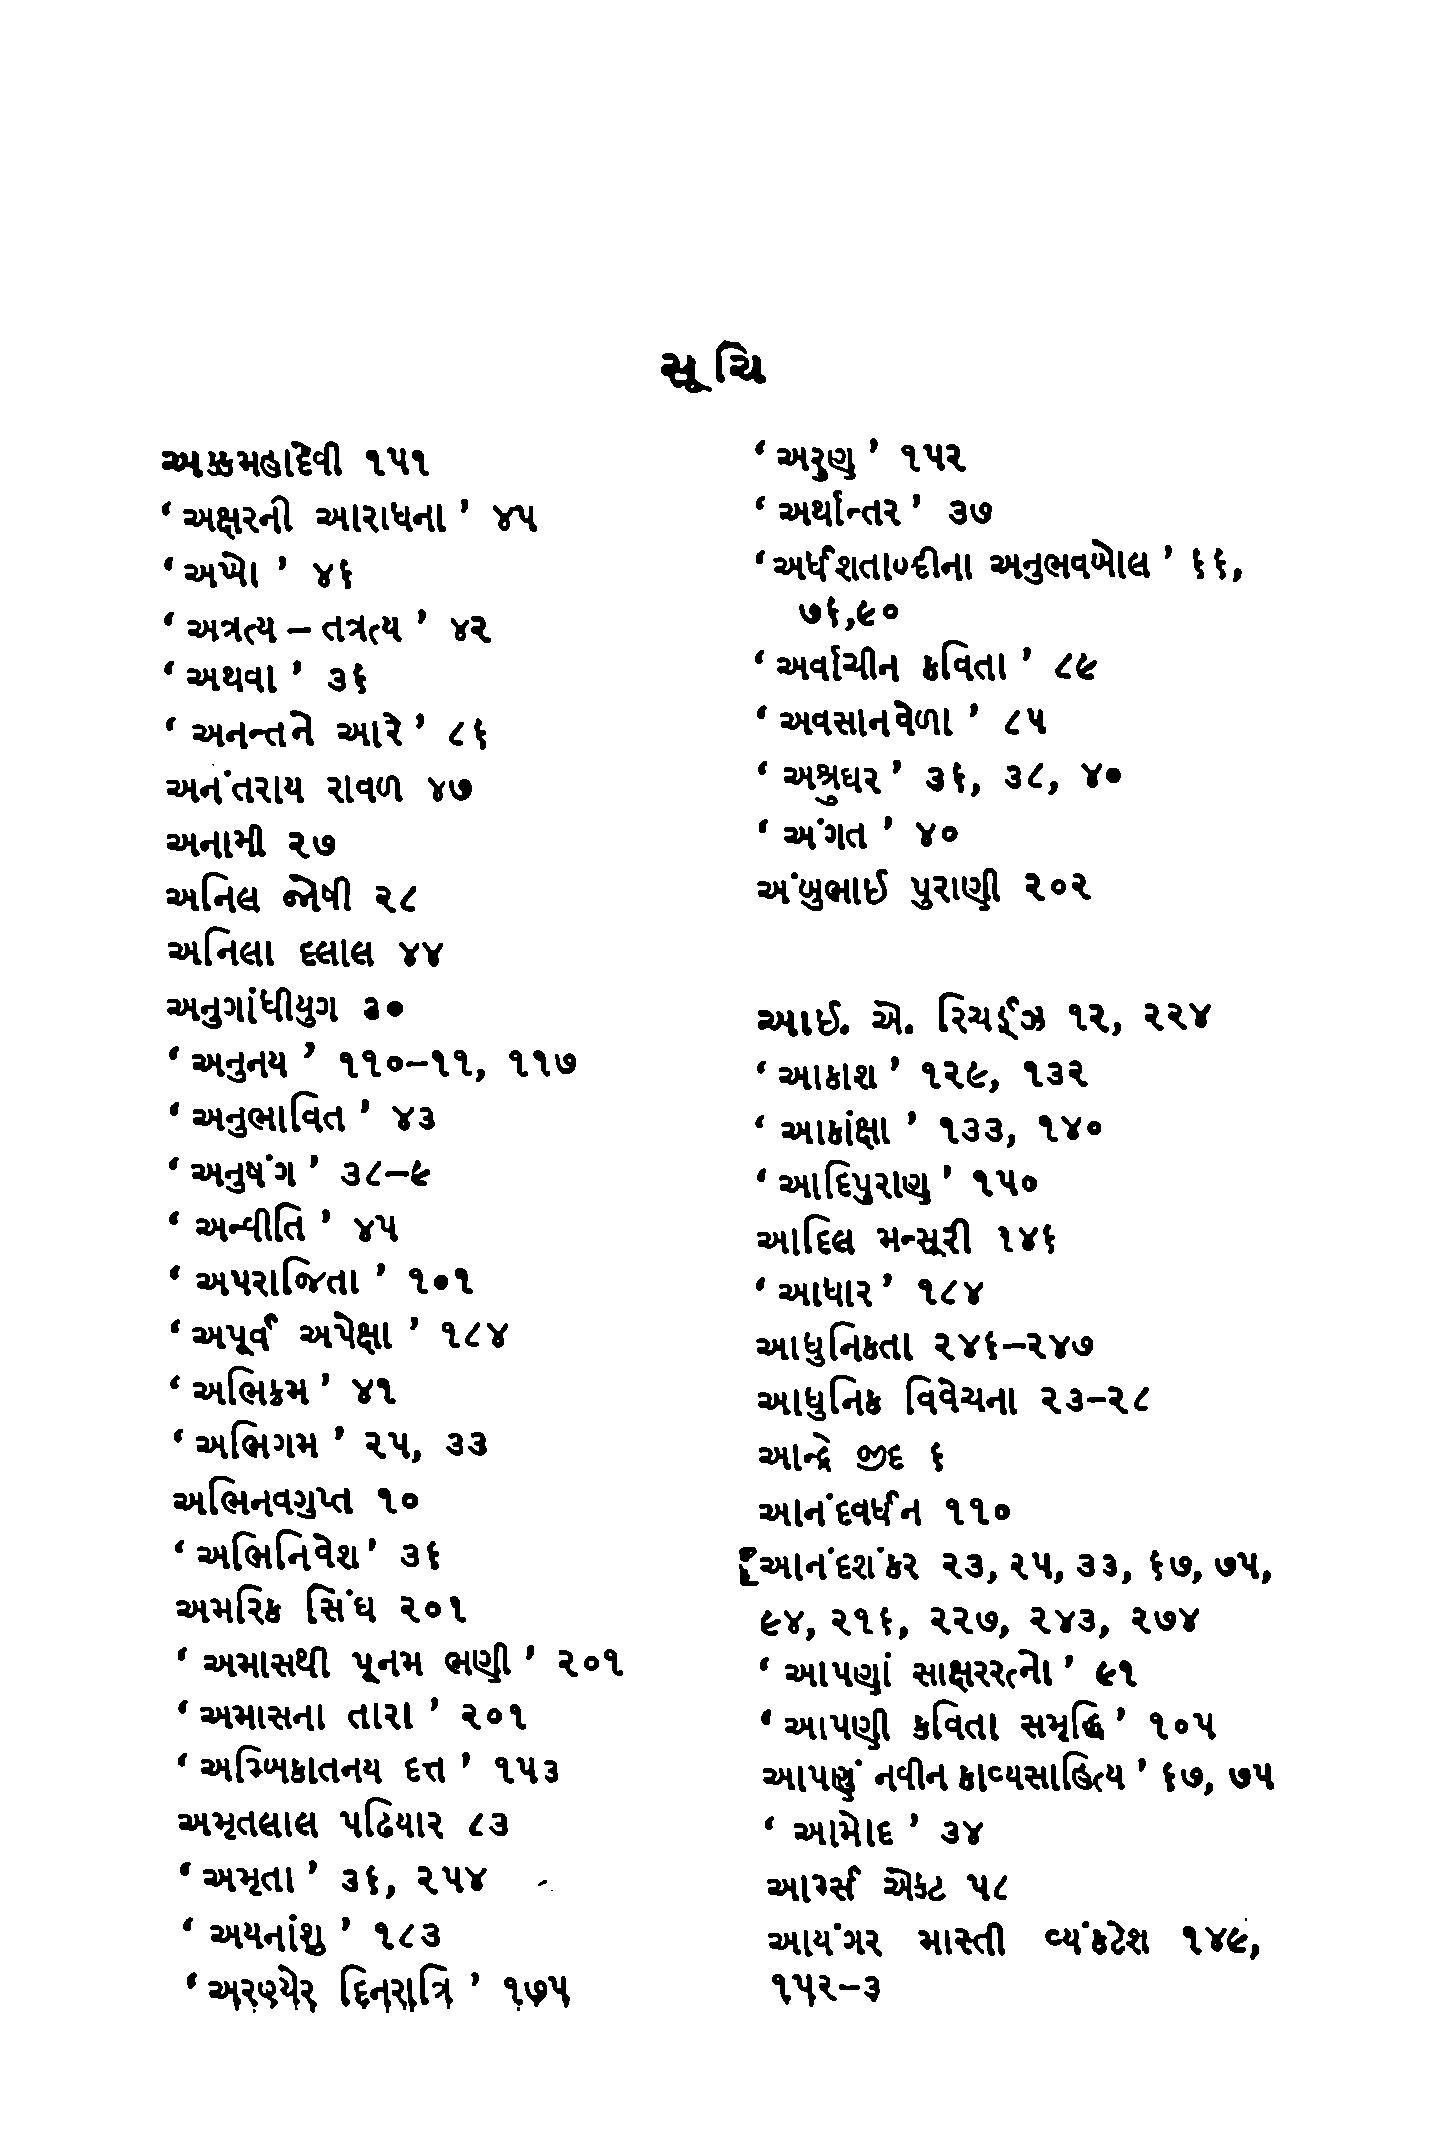 સૂચિ
અક્કમહાદેવી ૧૫૧
‘ અક્ષરની આરાધના ’ ૪૫
‘ અખો ’ ૪૬
‘ અત્રત્ય – તત્રત્ય ’ ૪૨
‘ અથવા ’ ૩૬
‘ અનન્તને આરે ’ ૮૬
અનંતરાય રાવળ ૪૭
અનામી ૨૭
અનિલ જોષી ૨૮
અનિલા દલાલ ૪૪
અનુગાંધીયુગ ૩૦
‘ અનુનય ’ ૧૧૦–૧૧, ૧૧૭
‘ અનુભાવિત ’ ૪૩
‘ અનુષંગ ’ ૩૮–૯
‘ અન્વીતિ ’ ૪૫
‘ અપરાજિતા ’ ૧૦૧
‘ અપૂર્વ અપેક્ષા ’ ૧૮૪
‘ અભિક્રમ ’ ૪૧
‘ અભિગમ ’ ૨૫, ૩૩
અભિનવગુપ્ત ૧૦
‘ અભિનિવેશ ’ ૩૬
અમરિક સિંઘ ૨૦૧
‘ અમાસથી પૂનમ ભણી ’ ૨૦૧
‘ અમાસના તારા ’ ૨૦૧
‘ અમ્બિકાતનય દત્ત ’ ૧૫૩
અમૃતલાલ પઢિયાર ૮૩
‘ અમૃતા ’ ૩૬, ૨૫૪
‘ અયનાંશુ ’ ૧૮૩
‘ અરણ્યેર દિનરાત્રિ ’ ૧૭૫
‘ અરુણુ ’ ૧૫૨
‘ અર્થાન્તર ’ ૩૭
‘ અર્ધશતાબ્દીના અનુભવબોલ ’ ૬૬,
૭૬,૯૦
‘ અર્વાચીન કવિતા ’ ૮૯
‘ અવસાનવેળા ’ ૮૫
‘ અશ્રુઘર ’ ૩૬, ૩૮, ૪૦
‘ અંગત ’ ૪૦
અંબુભાઈ પુરાણી ૨૦૨
આઈ. એ. રિચર્ડ્ઝ ૧૨, ૨૨૪
‘ આકાશ ’ ૧૨૯, ૧૩૨
‘ આકાંક્ષા ’ ૧૩૩, ૧૪૦
‘ આદિપુરાણુ ’ ૧૫૦
આદિલ મન્સૂરી ૧૪૬
‘ આધાર ’ ૧૮૪
આધુનિકતા ૨૪૬–૨૪૭
આધુનિક વિવેચના ૨૩–૨૮
આન્દ્રે જીદ ૬
આનંદવર્ધન ૧૧૦
આનંદશંકર ૨૩, ૨૫, ૩૩, ૬૭, ૭૫,
૯૪, ૨૧૬, ૨૨૭, ૨૪૩, ૨૭૪
‘ આપણાં સાક્ષરરત્નો ’ ૯૧
‘ આપણી કવિતા સમૃદ્ધિ ’ ૧૦૫
આપણું નવીન કાવ્યસાહિત્ય ’ ૬૭, ૭૫
‘ આમોદ ’ ૩૪
આર્મ્સ એક્ટ ૫૮
આયંગર માસ્તી વ્યંકટેશ ૧૪૯,
૧૫૨–૩